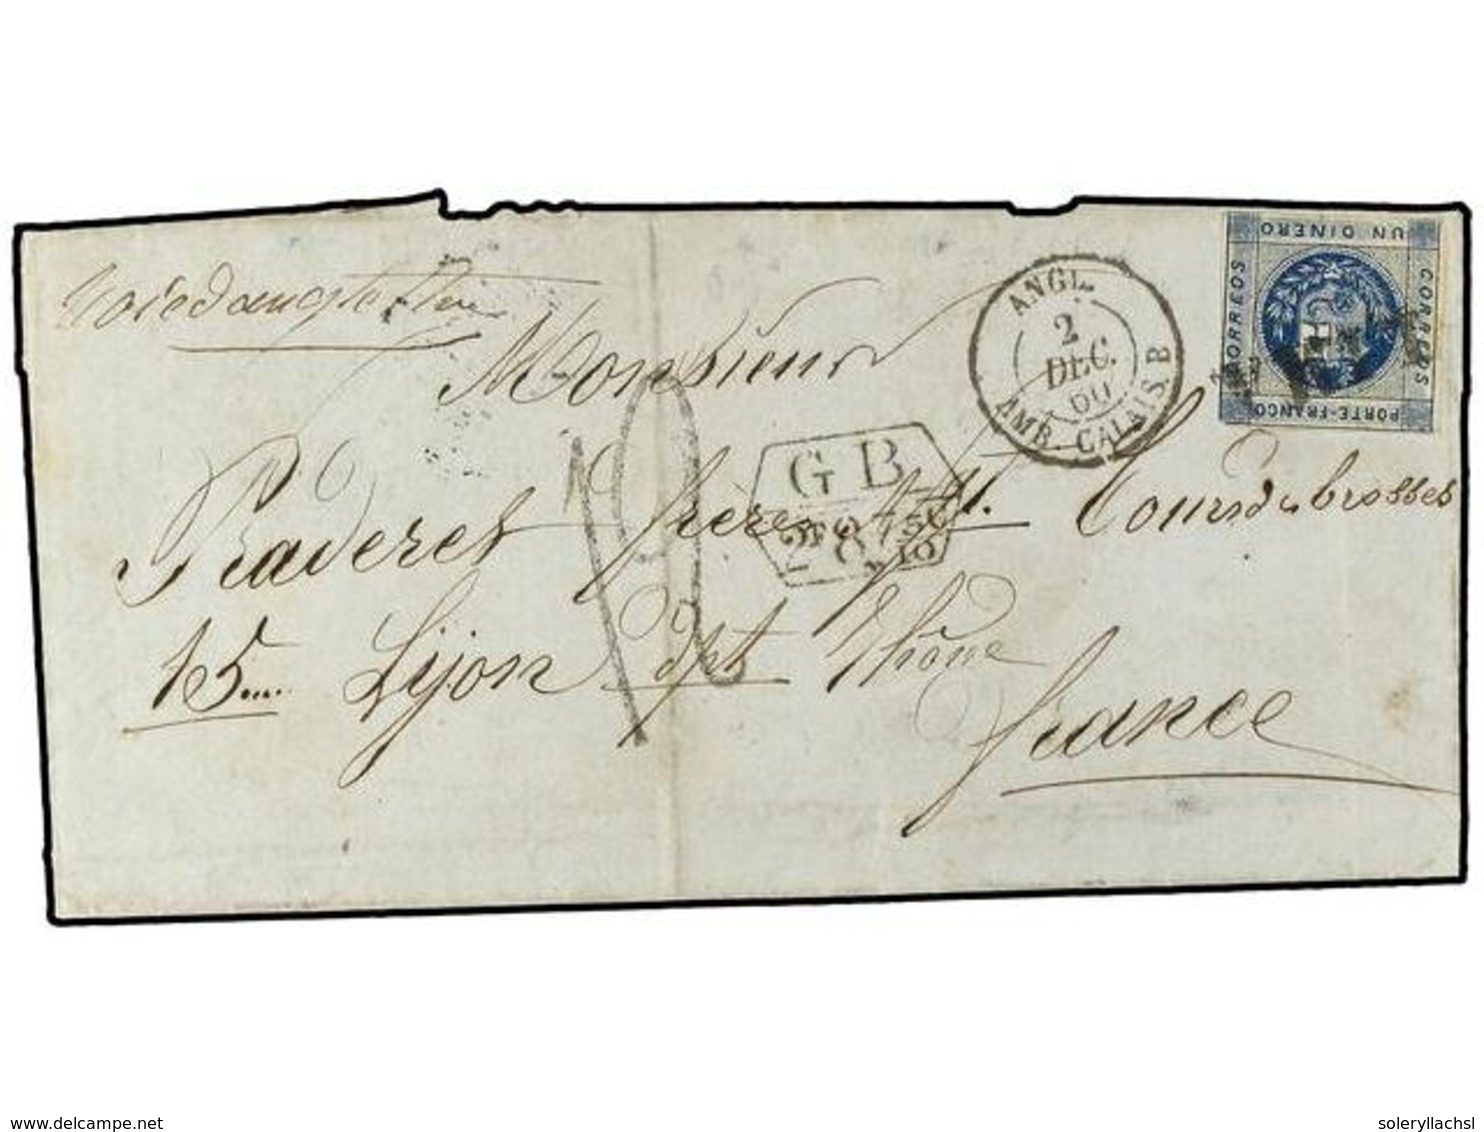 Voie d'angleterre
UN DINERO
CORREOS
CORREOS
PORTE-FRANCO
ANGL.
2
DEC.
60
AMB. CALAIS. B
Monsieur
GB
2F 87 5c
Praderet frères Cours des brosses
15 Lyon dpt Rhône
France
delcampe.net
soleryllachsl